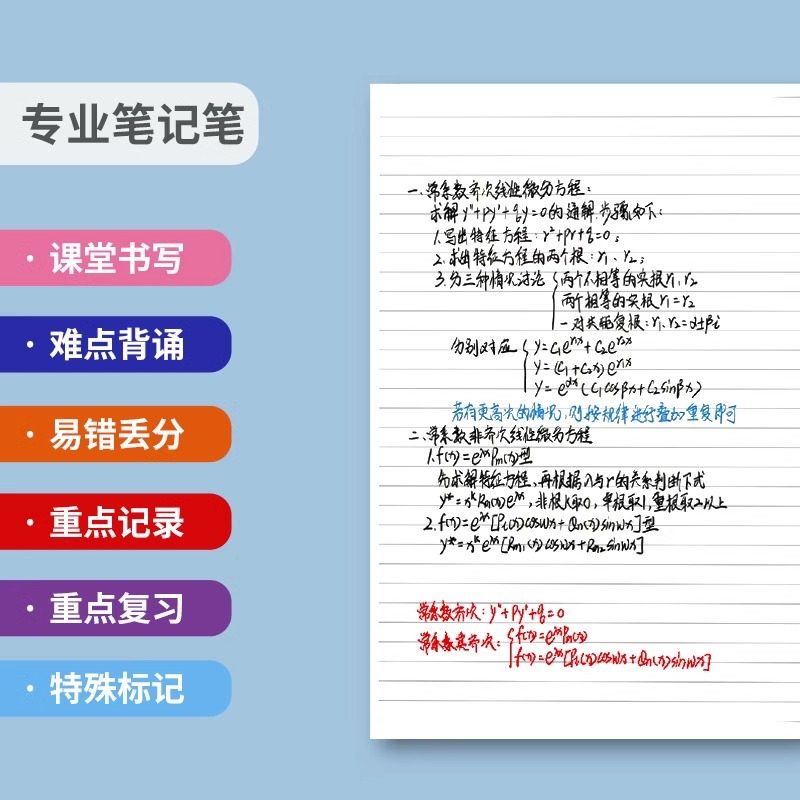 专业笔记笔
· 课堂书写
· 难点背诵
· 易错丢分
· 重点记录
· 重点复习
· 特殊标记
一、常系数齐次线性微分方程:
求解 y''+py'+qy=0的通解,步骤如下:
1.写出特征方程: r²+pr+q=0;
2.求出特征方程的两个根: r₁、r₂;
3.分三种情况讨论 { 两个不相等的实根 r₁、r₂
两个相等的实根 r₁=r₂
一对共轭复根: r₁、r₂=α±βi
分别对应 { y=C₁eʳ¹ˣ+C₂eʳ²ˣ
y=(C₁+C₂x)eʳ¹ˣ
y=eᵅˣ(C₁cosβx+C₂sinβx)
若有更高次的情况,则按规律进行叠加重复即可
二、常系数非齐次线性微分方程
1.f(x)=e^λx Pm(x)型
先求解特征方程,再根据λ与r的关系判断下式
y*=x^k Rm(x)e^λx,非根k取0,单根取1,重根取2以上
2.f(x)=e^λx[Pl(x)cosωx+Qn(x)sinωx]型
y*=x^k e^λx[Rm₁(x)cosωx+Rm₂sinωx]
常系数齐次: y''+Py'+q=0
常系数非齐次: { f(x)=e^λx Pm(x)
f(x)=e^λx[Pl(x)cosωx+Qn(x)sinωx]